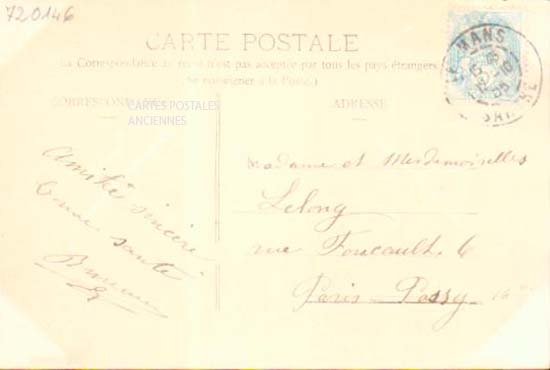 720146
CARTE POSTALE
La Correspondance au recto n'est pas acceptée par tous les pays étrangers
(Se renseigner à la Poste)
CORRESPONDANCE
CARTES POSTALES
ANCIENNES
ADRESSE
LE MANS
SARTHE
Amitié sincère
bonne santé
Madame et Mesdemoiselles
Lelong
rue Foucault, 6
Paris-Passy 16e